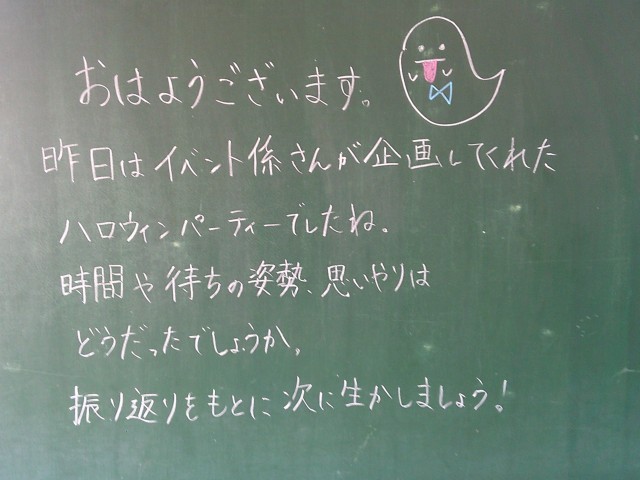 おはようございます。
昨日はイベント係さんが企画してくれた
ハロウィンパーティーでしたね。
時間や待ちの姿勢、思いやりは
どうだったでしょうか。
振り返りをもとに次に生かしましょう!